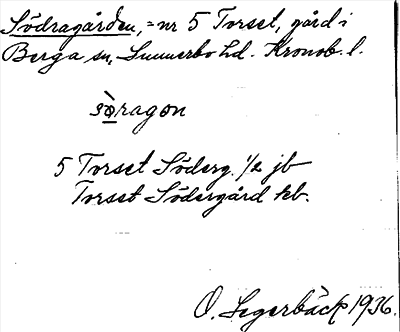 Södragården, = nr 5 Torset, gård i
Berga sn, Sunnerbo hd. Kronob. l.
sòragon
5 Torset Söderg. 1/2 jb
Torset Södergård kb.
O. Segerbäck 1936.